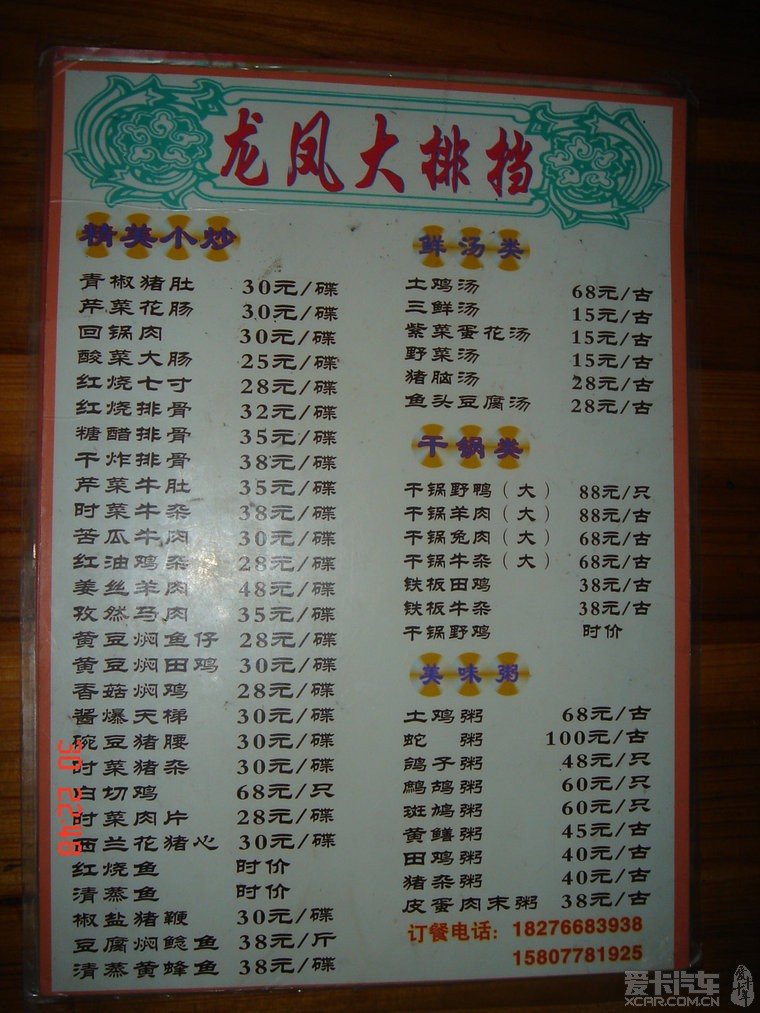 龙凤大排挡
精美小炒
青椒猪肚 30元/碟
芹菜花肠 30元/碟
回锅肉 30元/碟
酸菜大肠 25元/碟
红烧七寸 28元/碟
红烧排骨 32元/碟
糖醋排骨 35元/碟
干炸排骨 38元/碟
芹菜牛肚 35元/碟
时菜牛杂 38元/碟
苦瓜牛肉 30元/碟
红油鸡杂 28元/碟
姜丝羊肉 48元/碟
孜然马肉 35元/碟
黄豆焖鱼仔 28元/碟
黄豆焖田鸡 30元/碟
香菇焖鸡 28元/碟
酱爆天梯 30元/碟
豌豆猪腰 30元/碟
时菜猪杂 30元/碟
白切鸡 68元/只
时菜肉片 28元/碟
西兰花猪心 30元/碟
红烧鱼 时价
清蒸鱼 时价
椒盐猪鞭 30元/碟
豆腐焖鲶鱼 38元/斤
清蒸黄蜂鱼 38元/碟
鲜汤类
土鸡汤 68元/古
三鲜汤 15元/古
紫菜蛋花汤 15元/古
野菜汤 15元/古
猪脑汤 28元/古
鱼头豆腐汤 28元/古
干锅类
干锅野鸭（大） 88元/只
干锅羊肉（大） 88元/古
干锅兔肉（大） 68元/古
干锅牛杂（大） 68元/古
铁板田鸡 38元/古
铁板牛杂 38元/古
干锅野鸡 时价
美味粥
土鸡粥 68元/古
蛇 粥 100元/古
鸽子粥 48元/只
鹧鸪粥 60元/只
斑鸠粥 60元/只
黄鳝粥 45元/古
田鸡粥 40元/古
猪杂粥 40元/古
皮蛋肉末粥 38元/古
订餐电话：18276683938
15807781925
30 22:46
爱卡汽车
XCAR.COM.CN